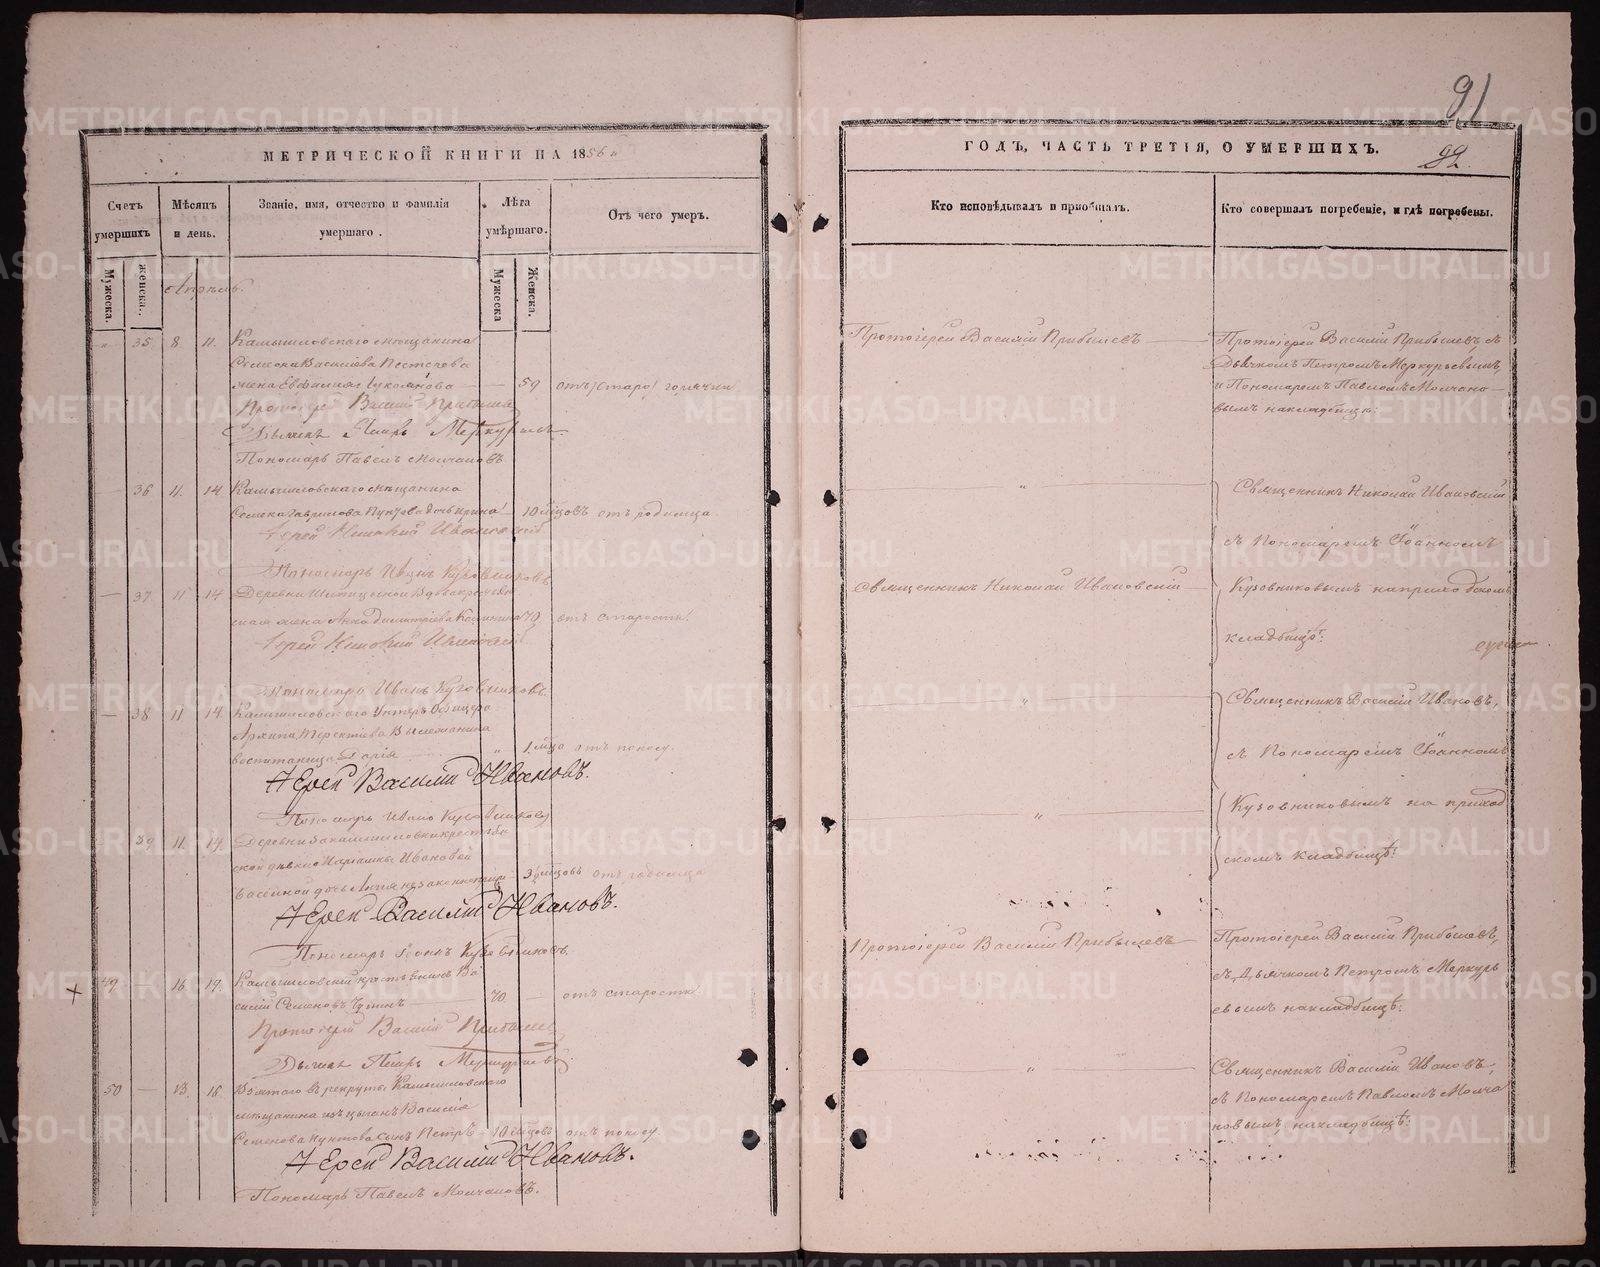 МЕТРИЧЕСКОЙ КНИГИ НА 1856
Счетъ умершихъ
Мѣсяцъ и день.
Званіе, имя, отчество и фамилія умершаго.
Лѣта умѣршаго.
Отъ чего умеръ.
Мужеска.
женска.
Мужеска
Женска.
Апрѣль
35 8 11. Камышловскаго мѣщанина
Семена Васильева
жена Евфимія 59 отъ горячки
Протоіерей Василій Прибылевъ
Дьячекъ Петръ Меркурьевъ
Пономарь Павелъ Молчановъ
36 11. 14 Камышловскаго мѣщанина
Семена Гаврилова дочь Ирина 10 мѣсцовъ отъ родимца
Іерей Николай Ивановскій
Пономарь Іоаннъ Кузовниковъ
37 11 14 Деревни
жена Анна Димитріева 70 отъ старости
Іерей Николай Ивановскій
Пономарь Иванъ Кузовниковъ
38 11 14 Камышловскаго Унтеръ Офицера
Архипа
воспитаница 1 мѣсца отъ поносу.
Іерей Василій Ивановъ.
Пономарь Иванъ Кузовниковъ
39 11 14. Деревни
дѣвки Ивановой
дочь 3 мѣсцовъ отъ родимца
Іерей Василій Ивановъ.
Пономарь Іоаннъ Кузовниковъ
49 16 19. Камышловскій Ва
силій Семеновъ 70 отъ старости
Протоіерей Василій Прибылевъ
Дьячекъ Петръ Меркурьевъ
50 13. 16. Взятаго въ рекруты Камышловскаго
мѣщанина изъ цыганъ Василія
Семенова сынъ Петръ 10 мѣсцовъ отъ поносу
Іерей Василій Ивановъ.
Пономарь Павелъ Молчановъ.
91
92
ГОДЪ, ЧАСТЬ ТРЕТІЯ, О УМЕРШИХЪ.
Кто исповѣдывалъ и пріобщалъ.
Кто совершалъ погребеніе, и гдѣ погребены.
Протоіерей Василій Прибылевъ
Протоіерей Василій Прибылевъ съ
Дьячкомъ Петромъ Меркурьевымъ
и Пономаремъ Павломъ Молчано
вымъ на кладбищѣ.
Священникъ Николай Ивановскій
съ Пономаремъ Іоанномъ
Священникъ Николай Ивановскій
Кузовниковымъ на приходскомъ
кладбищѣ.
Священникъ Василій Ивановъ,
съ Пономаремъ Іоанномъ
Кузовниковымъ на приход
скомъ кладбищѣ.
Протоіерей Василій Прибылевъ
Протоіерей Василій Прибылевъ,
съ Дьячкомъ Петромъ Меркурь
евымъ на кладбищѣ.
Священникъ Василій Ивановъ,
съ Пономаремъ Павломъ Молча
новымъ на кладбищѣ.
METRIKI.GASO-URAL.RU